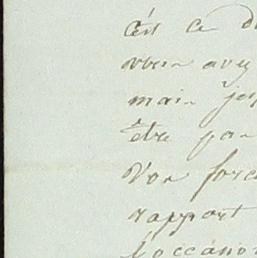 c'est ce d
vous avez
main je
être par
Vos forc
rapport
l'occasion